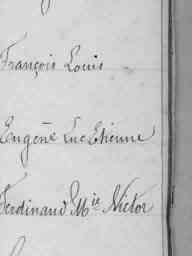 François Louis
Eugène Luc Etienne
Ferdinand Mie Victor